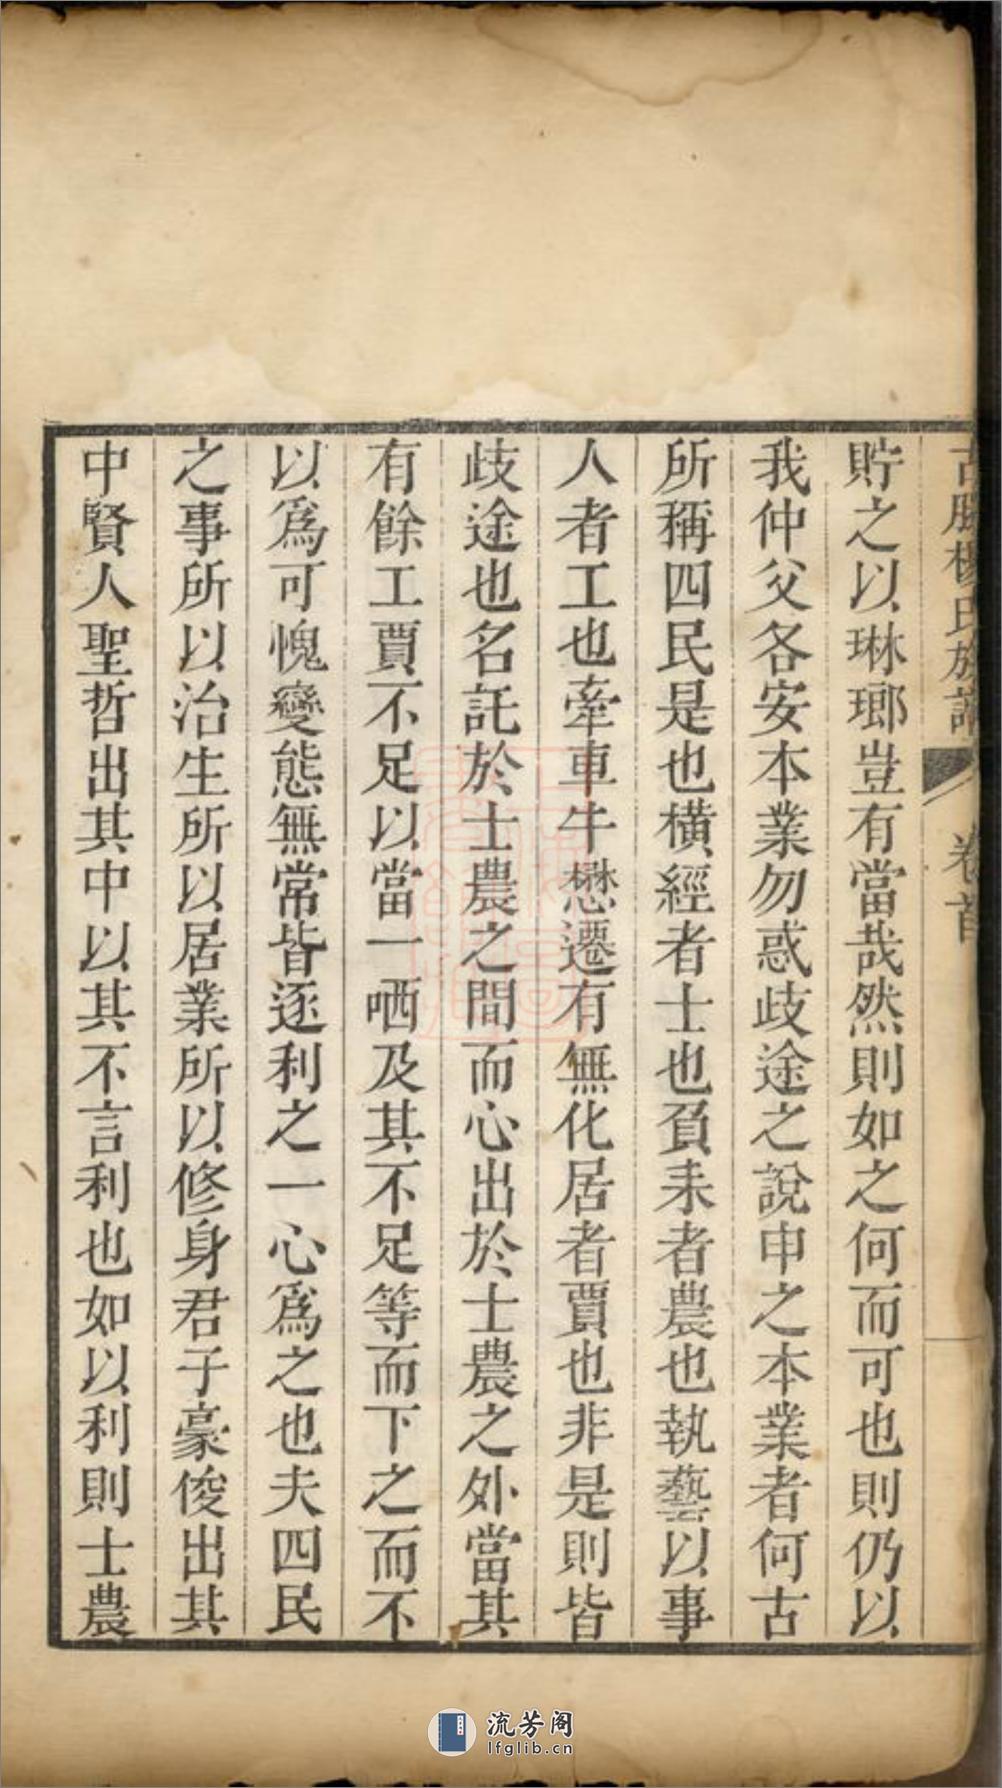 貯之以琳瑯豈有當哉然則如之何而可也則仍以
我仲父各安本業勿惑歧途之說申之本業者何古
所稱四民是也橫經者士也負耒者農也執藝以事
人者工也牽車牛懋遷有無化居者賈也非是則皆
歧途也名託於士農之間而心出於士農之外當其
有餘工賈不足以當一哂及其不足等而下之而不
以爲可愧變態無常皆逐利之一心爲之也夫四民
之事所以治生所以居業所以修身君子豪俊出其
中賢人聖哲出其中以其不言利也如以利則士農
楊氏族譜
卷首
流芳阁
lfglib.cn